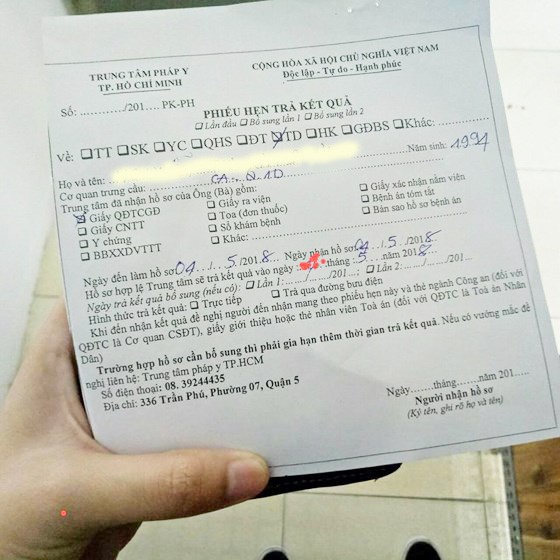 TRUNG TÂM PHÁP Y
TP. HỒ CHÍ MINH
CỘNG HÒA XÃ HỘI CHỦ NGHĨA VIỆT NAM
Độc lập - Tự do - Hạnh phúc
Số: ............/201.... PK-PH
PHIẾU HẸN TRẢ KẾT QUẢ
❑Lần đầu ❑Bổ sung lần 1 ❑Bổ sung lần 2
Về: ❑TT ❑SK ❑YC ❑QHS ❑ĐT ☑TD ❑HK ❑GĐBS ❑Khác: ..............
Họ và tên: Năm sinh: 1994
Cơ quan trưng cầu: CA Q 1D
Trung tâm đã nhận hồ sơ của Ông (Bà) gồm:
☑ Giấy QĐTCGĐ ❑ Giấy ra viện ❑ Giấy xác nhận nằm viện
❑ Giấy CNTT ❑ Toa (đơn thuốc) ❑ Bệnh án tóm tắt
❑ Y chứng ❑ Sổ khám bệnh ❑ Bản sao hồ sơ bệnh án
❑ BBXXDVTTT ❑ Khác:
Ngày đến làm hồ sơ 04 / 5 /2018 Ngày nhận hồ sơ 04 / 5 /2018
Hồ sơ hợp lệ Trung tâm sẽ trả kết quả vào ngày: tháng 5 năm 2018
Ngày trả kết quả bổ sung (nếu có): ❑ Lần 1: ....../....../201...; ❑ Lần 2: ....../....../201...
Hình thức trả kết quả: ❑ Trực tiếp ❑ Trả qua đường bưu điện
Khi đến nhận kết quả đề nghị người đến nhận mang theo phiếu hẹn này và thẻ ngành Công an (đối với
QĐTC là Cơ quan CSĐT), giấy giới thiệu hoặc thẻ nhân viên Toà án (đối với QĐTC là Toà án Nhân
Dân)
Trường hợp hồ sơ cần bổ sung thì phải gia hạn thêm thời gian trả kết quả. Nếu có vướng mắc đề
nghị liên hệ: Trung tâm pháp y TP.HCM
Số điện thoại: 08. 39244435
Địa chỉ: 336 Trần Phú, Phường 07, Quận 5
Ngày.......tháng.......năm 201.....
Người nhận hồ sơ
(Ký tên, ghi rõ họ và tên)